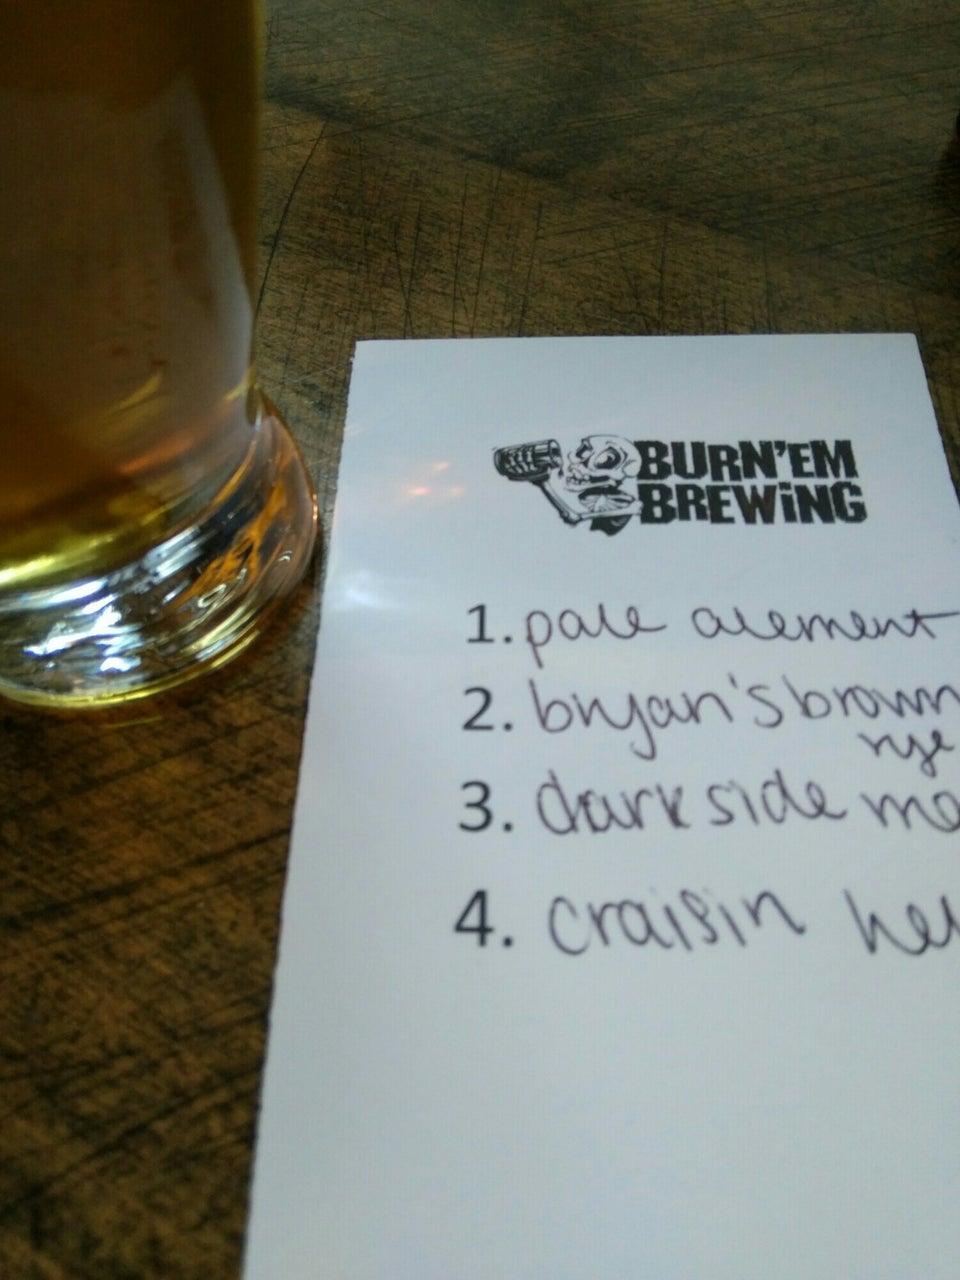 BURN'EM
BREWiNG
1. pale alement
2. bryan's brown
rye
3. dark side
4. craisin